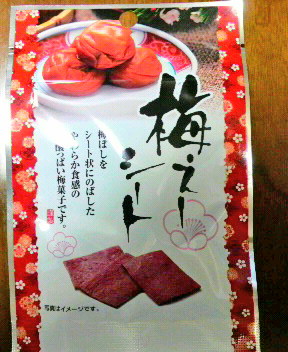 梅ぇ〜
シート
梅ぼしを
シート状にのばした
やわらか食感の
酸っぱい梅菓子です。
写真はイメージです。